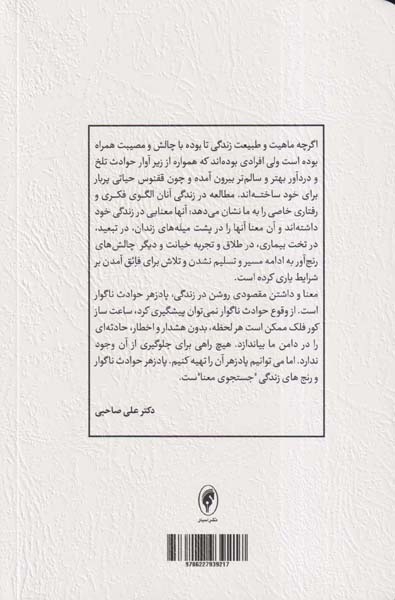 اگرچه ماهیت و طبیعت زندگی تا بوده با چالش و مصیبت همراه
بوده است ولی افرادی بوده‌اند که همواره از زیر آوار حوادث تلخ
و دردآور بهتر و سالم‌تر بیرون آمده و چون ققنوس حیاتی پربار
برای خود ساخته‌اند. مطالعه در زندگی آنان الگوی فکری و
رفتاری خاصی را به ما نشان می‌دهد: آنها معنایی در زندگی خود
داشته‌اند و آن معنا آنها را در پشت میله‌های زندان، در تبعید،
در تخت بیماری، در طلاق و تجربه خیانت و دیگر چالش‌های
رنج‌آور به ادامه مسیر و تسلیم نشدن و تلاش برای فائق آمدن بر
شرایط یاری کرده است.
معنا و داشتن مقصودی روشن در زندگی، پادزهر حوادث ناگوار
است. از وقوع حوادث ناگوار نمی‌توان پیشگیری کرد، ساعت ساز
کور فلک ممکن است هر لحظه، بدون هشدار و اخطار، حادثه‌ای
را در دامن ما بیاندازد. هیچ راهی برای جلوگیری از آن وجود
ندارد. اما می توانیم پادزهر آن را تهیه کنیم. پادزهر حوادث ناگوار
و رنج های زندگی "جستجوی معنا"ست.
دکتر علی صاحبی
9786227939217